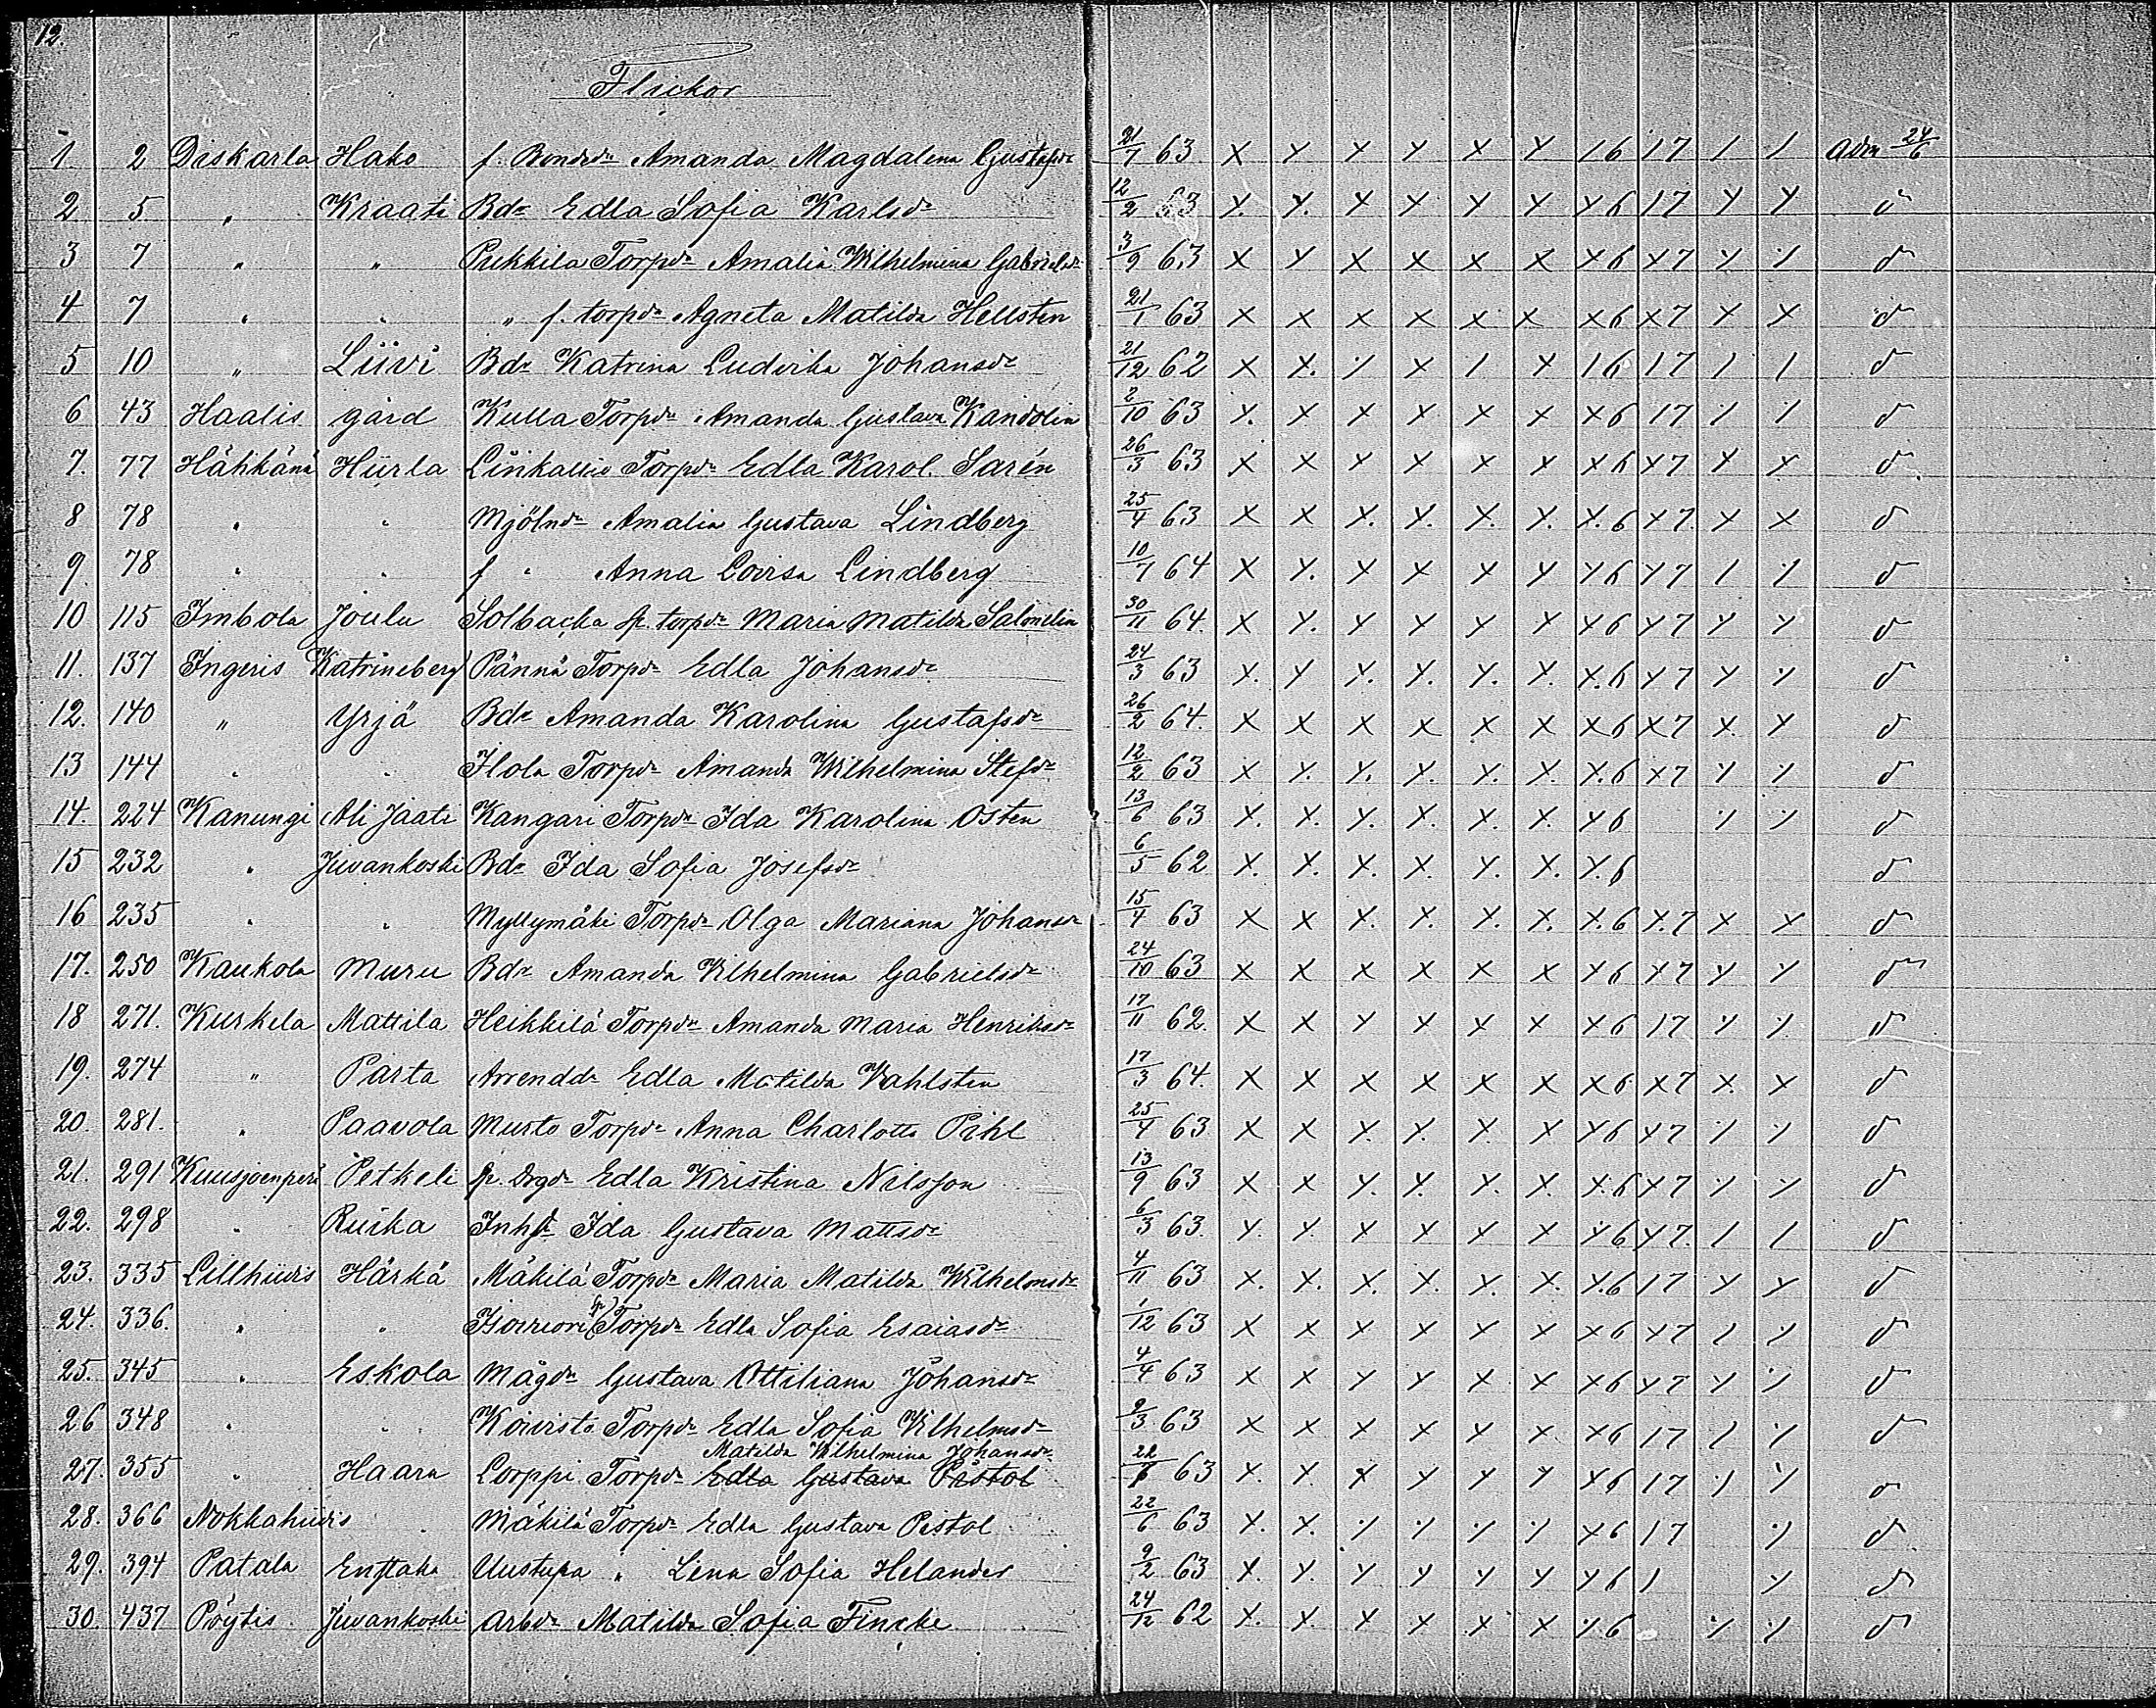 12.
Flickor
1 2 Diskarla Hako f. Bondedr Amanda Magdalena Gustafsdr 21/7 63 x x x x x x 16 17 1 1 Adm 24/6
2 5 " Kraati Bdr Edla Sofia Karlsdr 12/2 63 x. x. x x x x x6 17 x x d
3 7 " " Pukkila Torpdr Amalia Wilhelmina Gabrielsdr 3/9 63 x x x x x x x6 x7 x / d
4 7 " " " f. torpdr Agneta Matilda Hellsten 21/1 63 x x x x x x x6 x7 x x d
5 10 " Liivi Bdr Katrina Ludvika Johansdr 21/12 62 x x. / x / x 16 17 / / d
6 43 Haalis gård Kulla Torpdr Amanda Gustava Kandolin 2/10 63 x. x x x x x x6 17 / / d
7. 77 Hähkänä Hiirla Linkallio Torpdr Edla Karol. Sarén 26/3 63 x x x x x x x6 x7 x x d
8 78 " " Mjölndr Amalia Gustava Lindberg 25/4 63 x x x. x. x. x. x.6 x7 x x d
9 78 " " f " Anna Lovisa Lindberg 10/7 64 x x. x x x x x6 x7 / / d
10 115 Imbola Joulu Solbacka sp. torpdr Maria Matilda Salmelin 30/11 64. x x. x x x x x6 x7 x x d
11. 137 Ingeris Katrineberg Pännä Torpdr Edla Johansdr 24/3 63 x. x x. x. x. x. x.6 x7 x / d
12. 140 " Yrjä Bdr Amanda Karolina Gustafsdr 26/2 64. x x x x x x x6 x7 x x d
13 144 " " Ilola Torpdr Amanda Wilhelmina Stefsdr 12/2 63 x x. x. x. x. x. x.6 x7 / / d
14. 224 Kanungi Ali Jaati Kangari Torpdr Ida Karolina Osten 13/6 63 x. x. x. x. x. x. x6 / / d
15 232 " Juvankoski Bdr Ida Sofia Josefsdr 6/5 62 x. x. x. x. x. x. x.6 d
16 235 " " Myllymäki Torpdr Olga Mariana Johansdr 15/4 63 x x x. x. x. x. x.6 x.7 x x d
17. 250 Kaukola Muru Bdr Amanda Vilhelmina Gabrielsdr 24/10 63 x x x x x x x6 x7 x x d
18 271. Kurkela Mattila Heikkilä Torpdr Amanda Maria Henriksdr 17/11 62. x x x x x x x6 17 / / d
19. 274 " Parta Arrenddr Edla Matilda Wahlsten 17/3 64. x x x x x x x6 x7 x. x d
20. 281. " Paavola Musto Torpdr Anna Charlotta Pihl 25/4 63 x x x. x. x. x x6 x7 / / d
21. 291 Kuusjoenperä Petkeli sp. Drgdr Edla Kristina Nilsson 13/9 63 x x x. x. x. x. x.6 x7 / / d
22. 298 " Ruska Inhdr Ida Gustava Mattsdr 6/3 63. x. x. x x x x x6 x7. / / d
23. 335 Lillhiidis Härkä Mäkilä Torpdr Maria Matilda Wilhelmsdr 4/11 63 x. x. x. x. x. x. x.6 17 x x d
24. 336. " " Isovuori (sp) Torpdr Edla Sofia Esaiasdr 1/12 63 x x x x x x x6 x7 / / d
25. 345 " Eskola Mågdr Gustava Ottiliana Johansdr 4/4 63 x x x x x x x6 x7 x / d
26 348 " " Koivisto Torpdr Edla Sofia Vilhelmsdr 9/3 63 x x x x x x x6 17 / / d
Matilda Wilhelmina Johansdr
27. 355 " Haara Lorppi Torpdr Edla Gustava Pistol 22/6 63 x. x. x x x x x6 17 / / d
28. 366 Nokkahiidis " Mäkilä Torpdr Edla Gustava Pistol 22/6 63 x. x. / / / / x6 17 / d
29. 394 Patala Enstaka Uustupa " Lena Sofia Helander 9/2 63 x. x. x x x x x6 1 x d
30. 437 Pöytis Juvankoski Arbdr Matilda Sofia Fincke 24/12 62 x. x. x x x x x.6 / / d